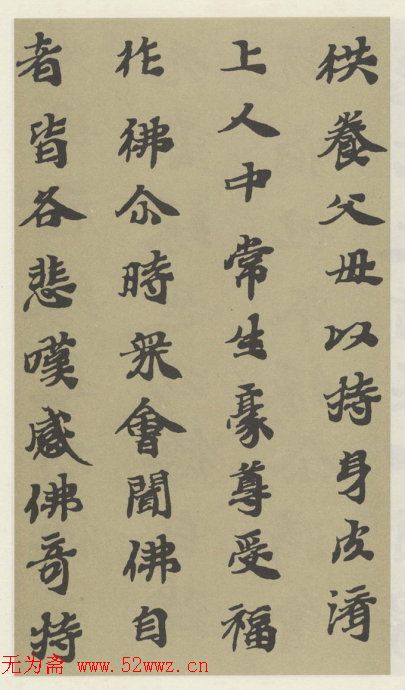 供養父母以持身皮濟
上人中常生豪尊受福
作佛尒時眾會聞佛自
者皆各悲嘆感佛奇特
无为斋 www.52wwz.cn